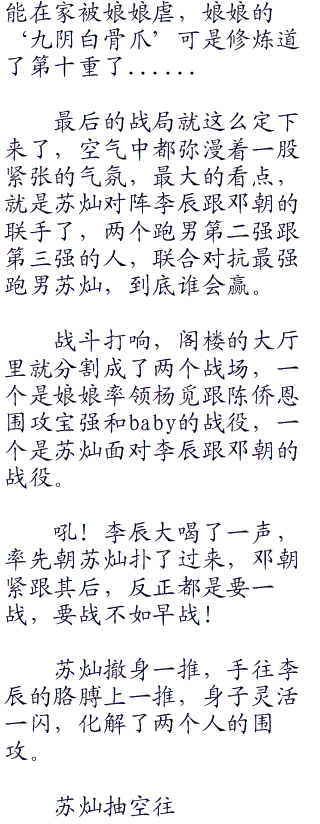 能在家被娘娘虐，娘娘的
‘九阴白骨爪’可是修炼道
了第十重了......
最后的战局就这么定下
来了，空气中都弥漫着一股
紧张的气氛，最大的看点，
就是苏灿对阵李辰跟邓朝的
联手了，两个跑男第二强跟
第三强的人，联合对抗最强
跑男苏灿，到底谁会赢。
战斗打响，阁楼的大厅
里就分割成了两个战场，一
个是娘娘率领杨觅跟陈侨恩
围攻宝强和baby的战役，一
个是苏灿面对李辰跟邓朝的
战役。
吼！李辰大喝了一声，
率先朝苏灿扑了过来，邓朝
紧跟其后，反正都是要一
战，要战不如早战！
苏灿撤身一推，手往李
辰的胳膊上一推，身子灵活
一闪，化解了两个人的围
攻。
苏灿抽空往